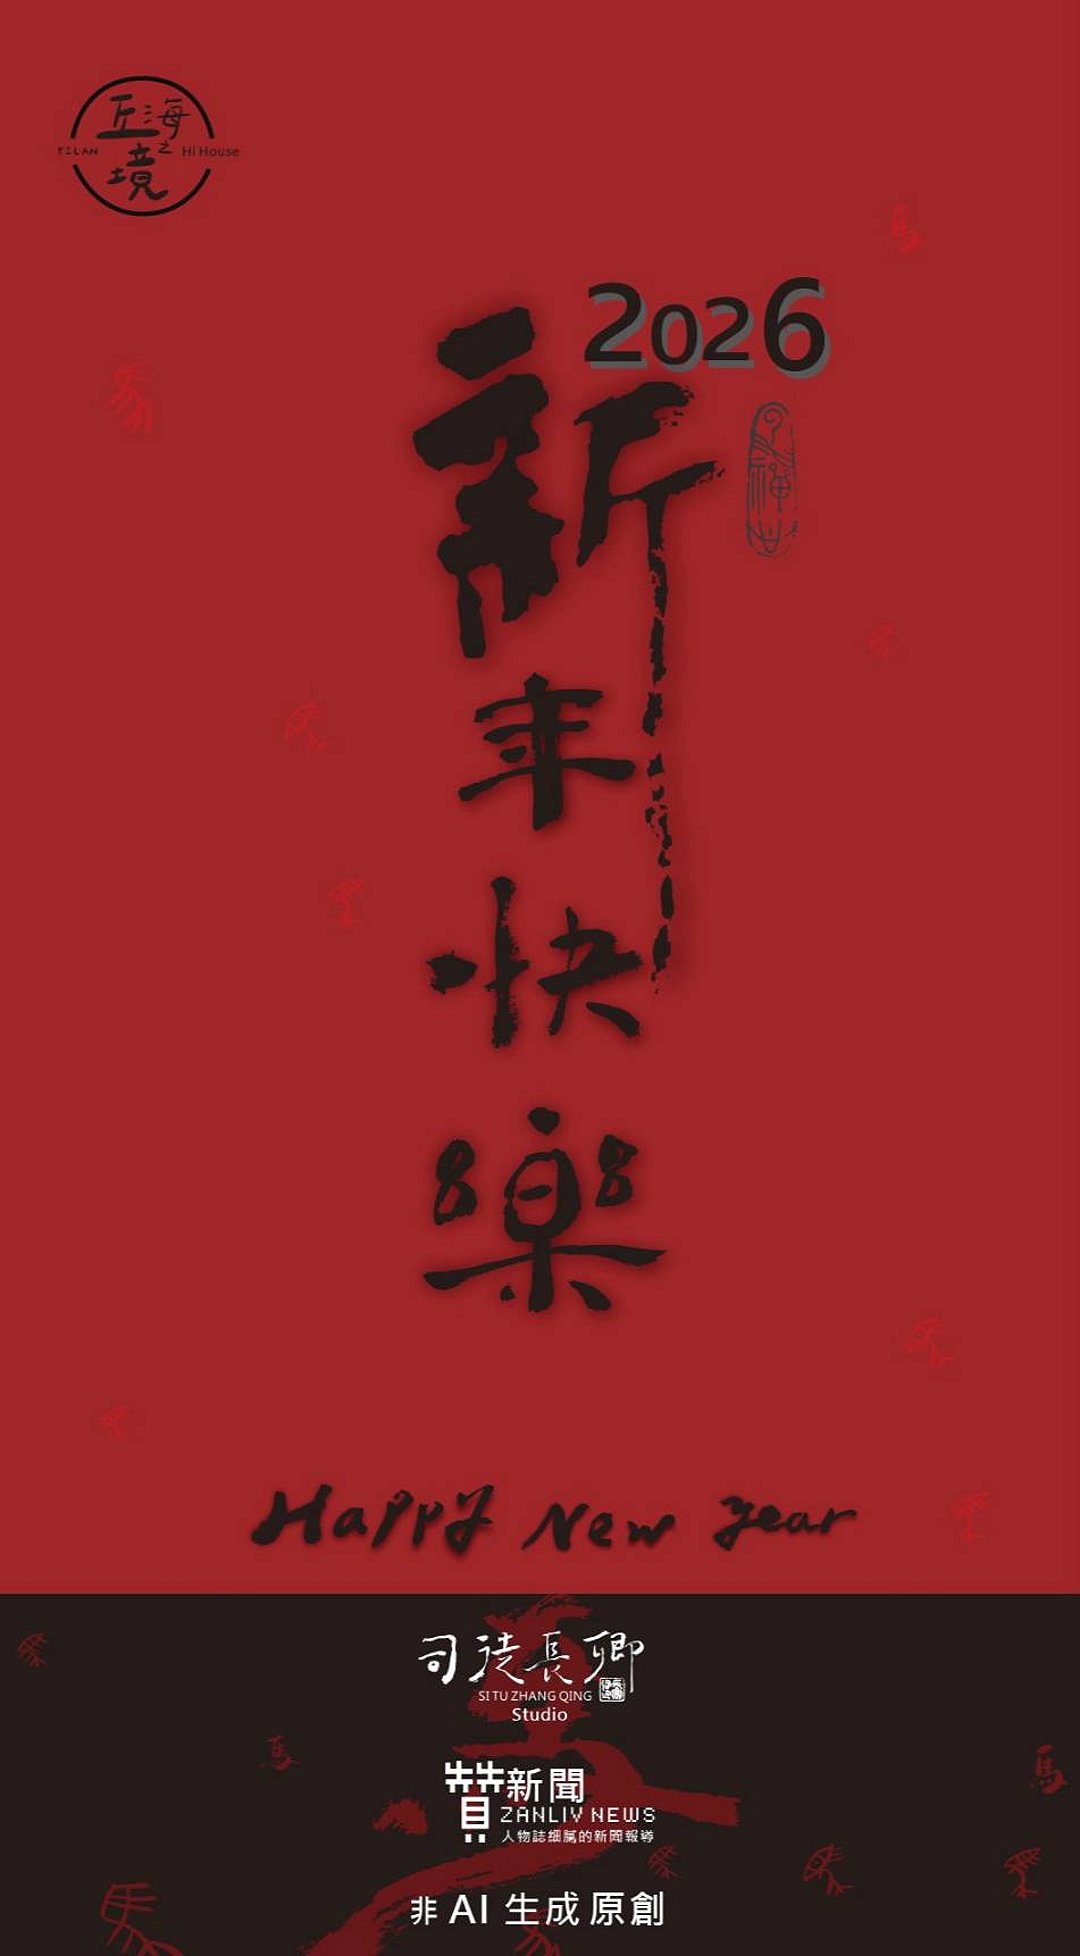 匠海之境
YILAN
Hi House
2026
新年快樂
Happy New Year
司徒長卿
SI TU ZHANG QING
Studio
贊新聞
ZANLIV NEWS
人物誌細膩的新聞報導
非 AI 生成 原創
馬
馬
馬
馬